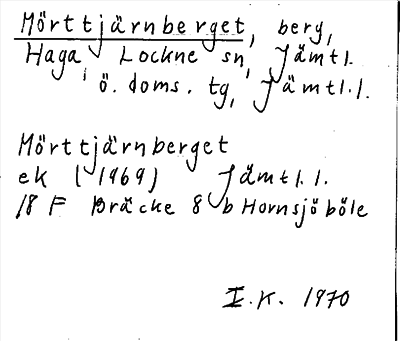 Mörttjärnberget, berg,
Haga, Lockne sn, Jämtl.
ö. doms. tg, Jämtl.l.
Mörttjärnberget
ek (1969) Jämtl.l.
18 F Bräcke 8 b Hornsjöböle
I.K. 1970